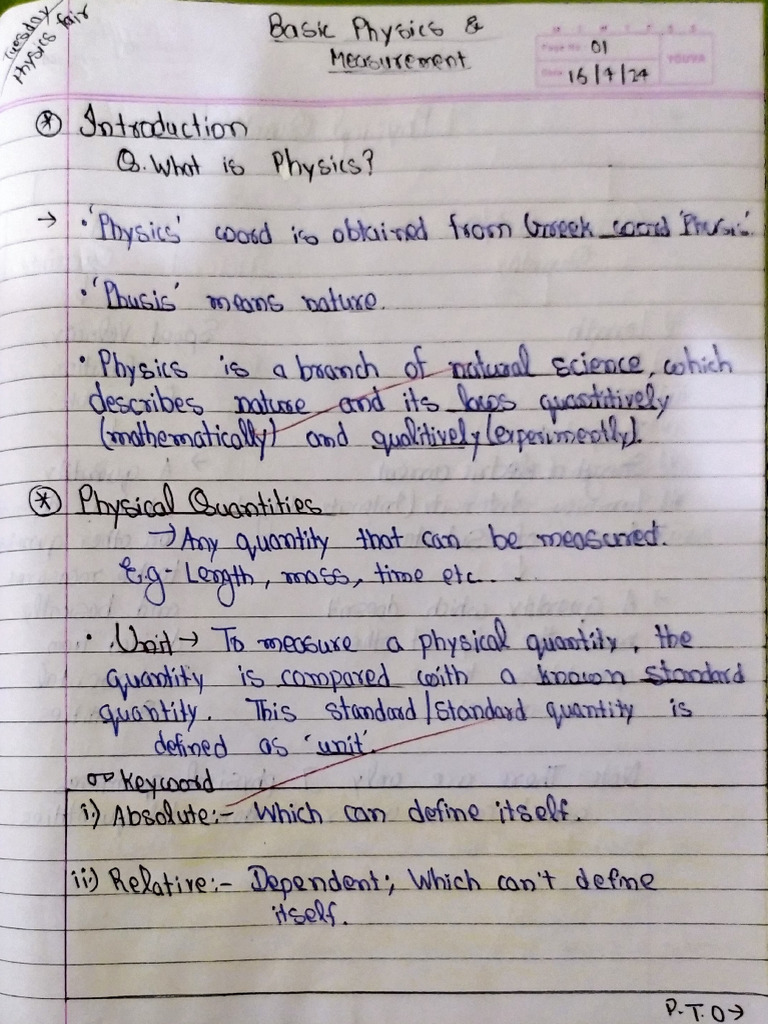 Tuesday
Physics fair
Basic Physics &
Measurement
M T W T F S S
Page No. 01
Date 16/4/24
YOUVA
⊛ Introduction
Q. What is Physics?
→ • 'Physics' word is obtained from Greek word 'Phusis'.
• 'Phusis' means nature.
• Physics is a branch of natural science, which
describes nature and its laws quantitively
(mathematically) and qualitively (experimently).
⊛ Physical Quantities
→ Any quantity that can be measured.
E.g- Length, mass, time etc..
• Unit → To measure a physical quantity, the
quantity is compared with a known standard
quantity. This standard/standard quantity is
defined as 'unit'.
Keyword
i:) Absolute:- Which can define itself.
ii:) Relative:- Dependent; Which can't define
itself.
P.T.O→